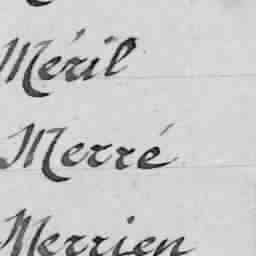 Méril
Merré
Merrien